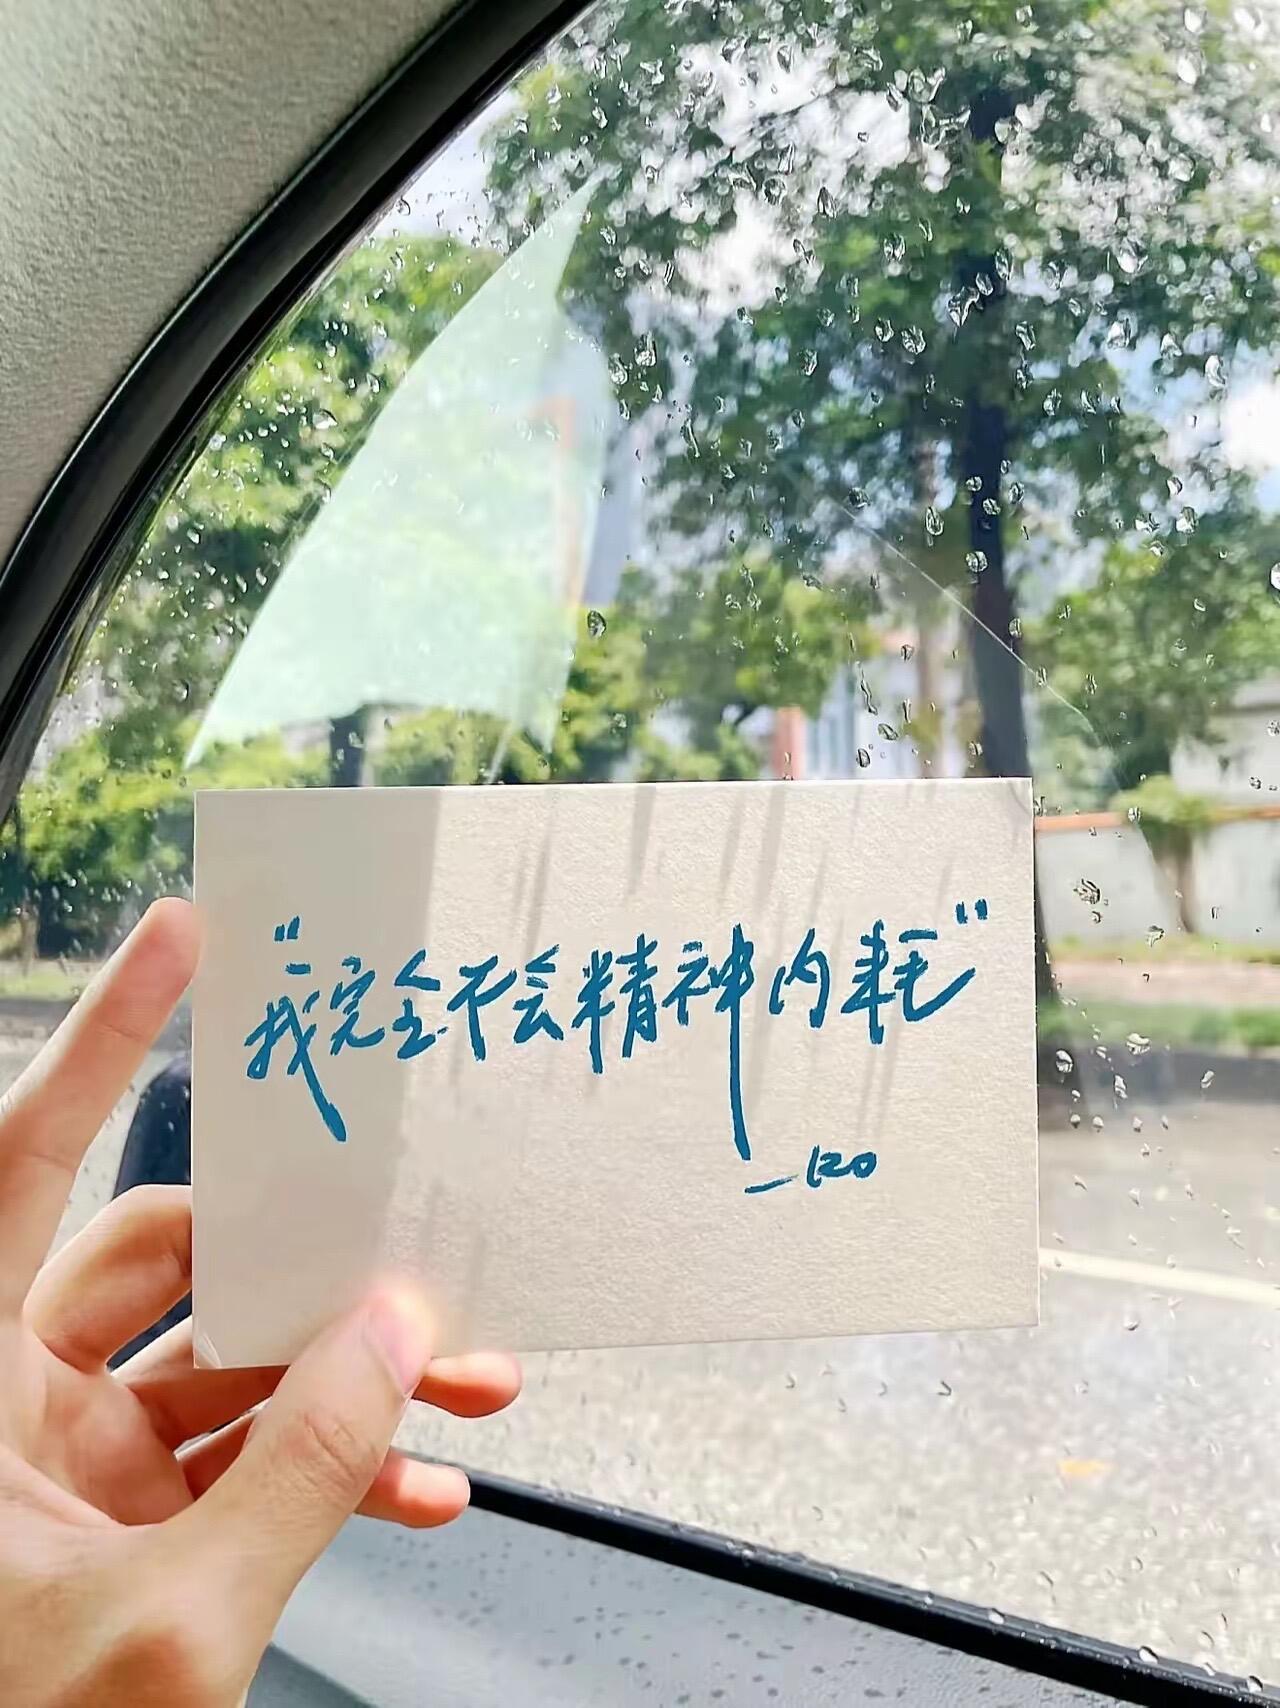 "我完全不会精神内耗"
—K20